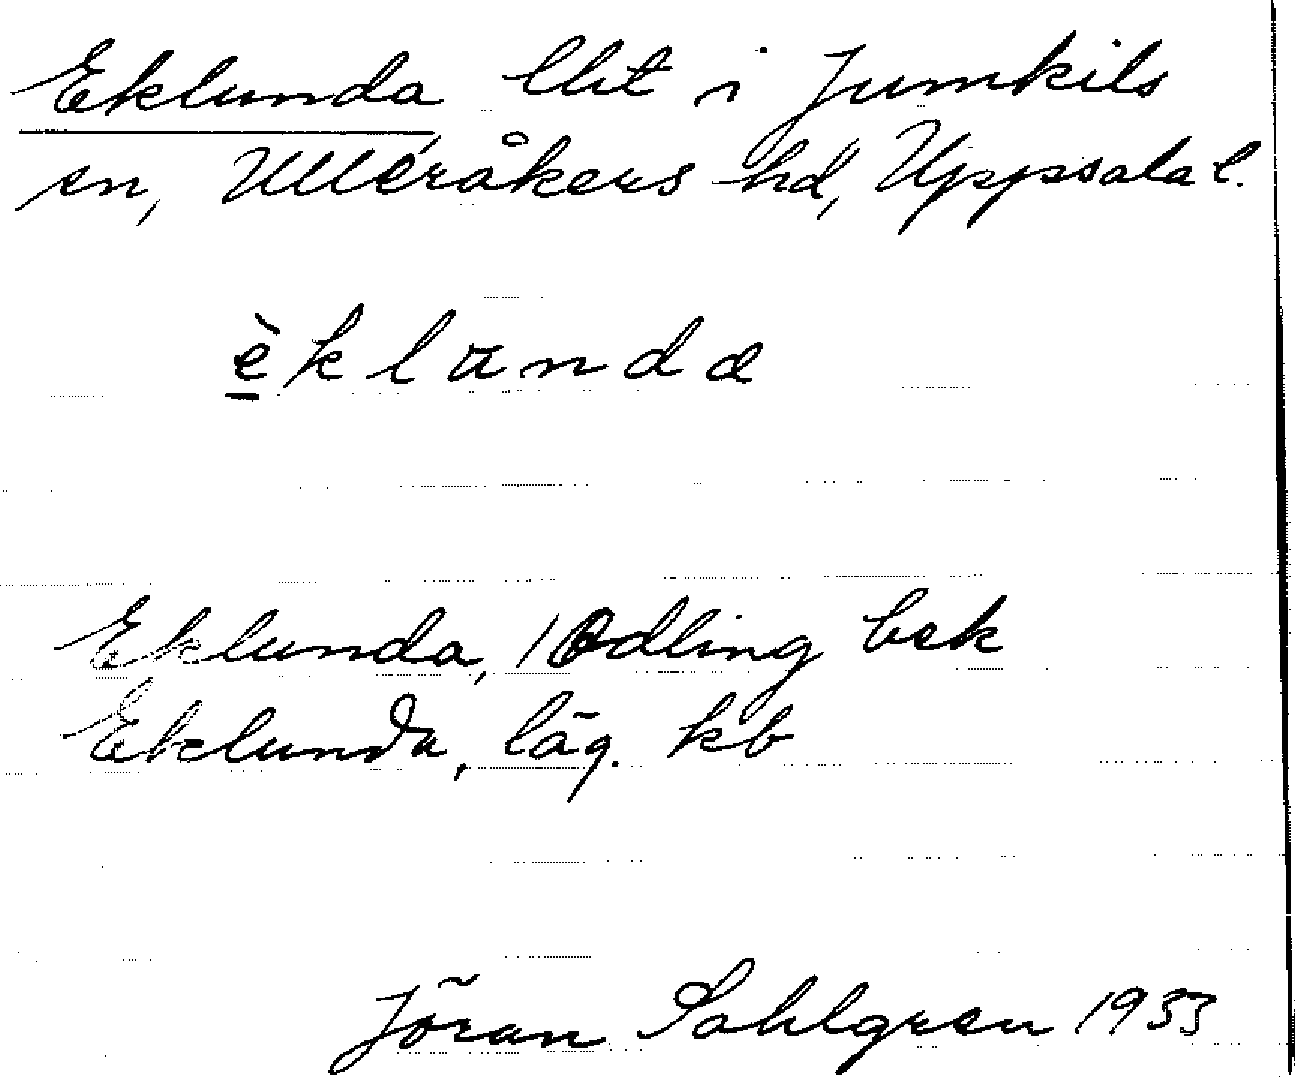 Eklunda lht i Jumkils
sn, Ulleråkers hd, Uppsala l.
èklanda
Eklunda, 1 Odling bek
Eklunda, läg. kb
Jöran Sahlgren 1953